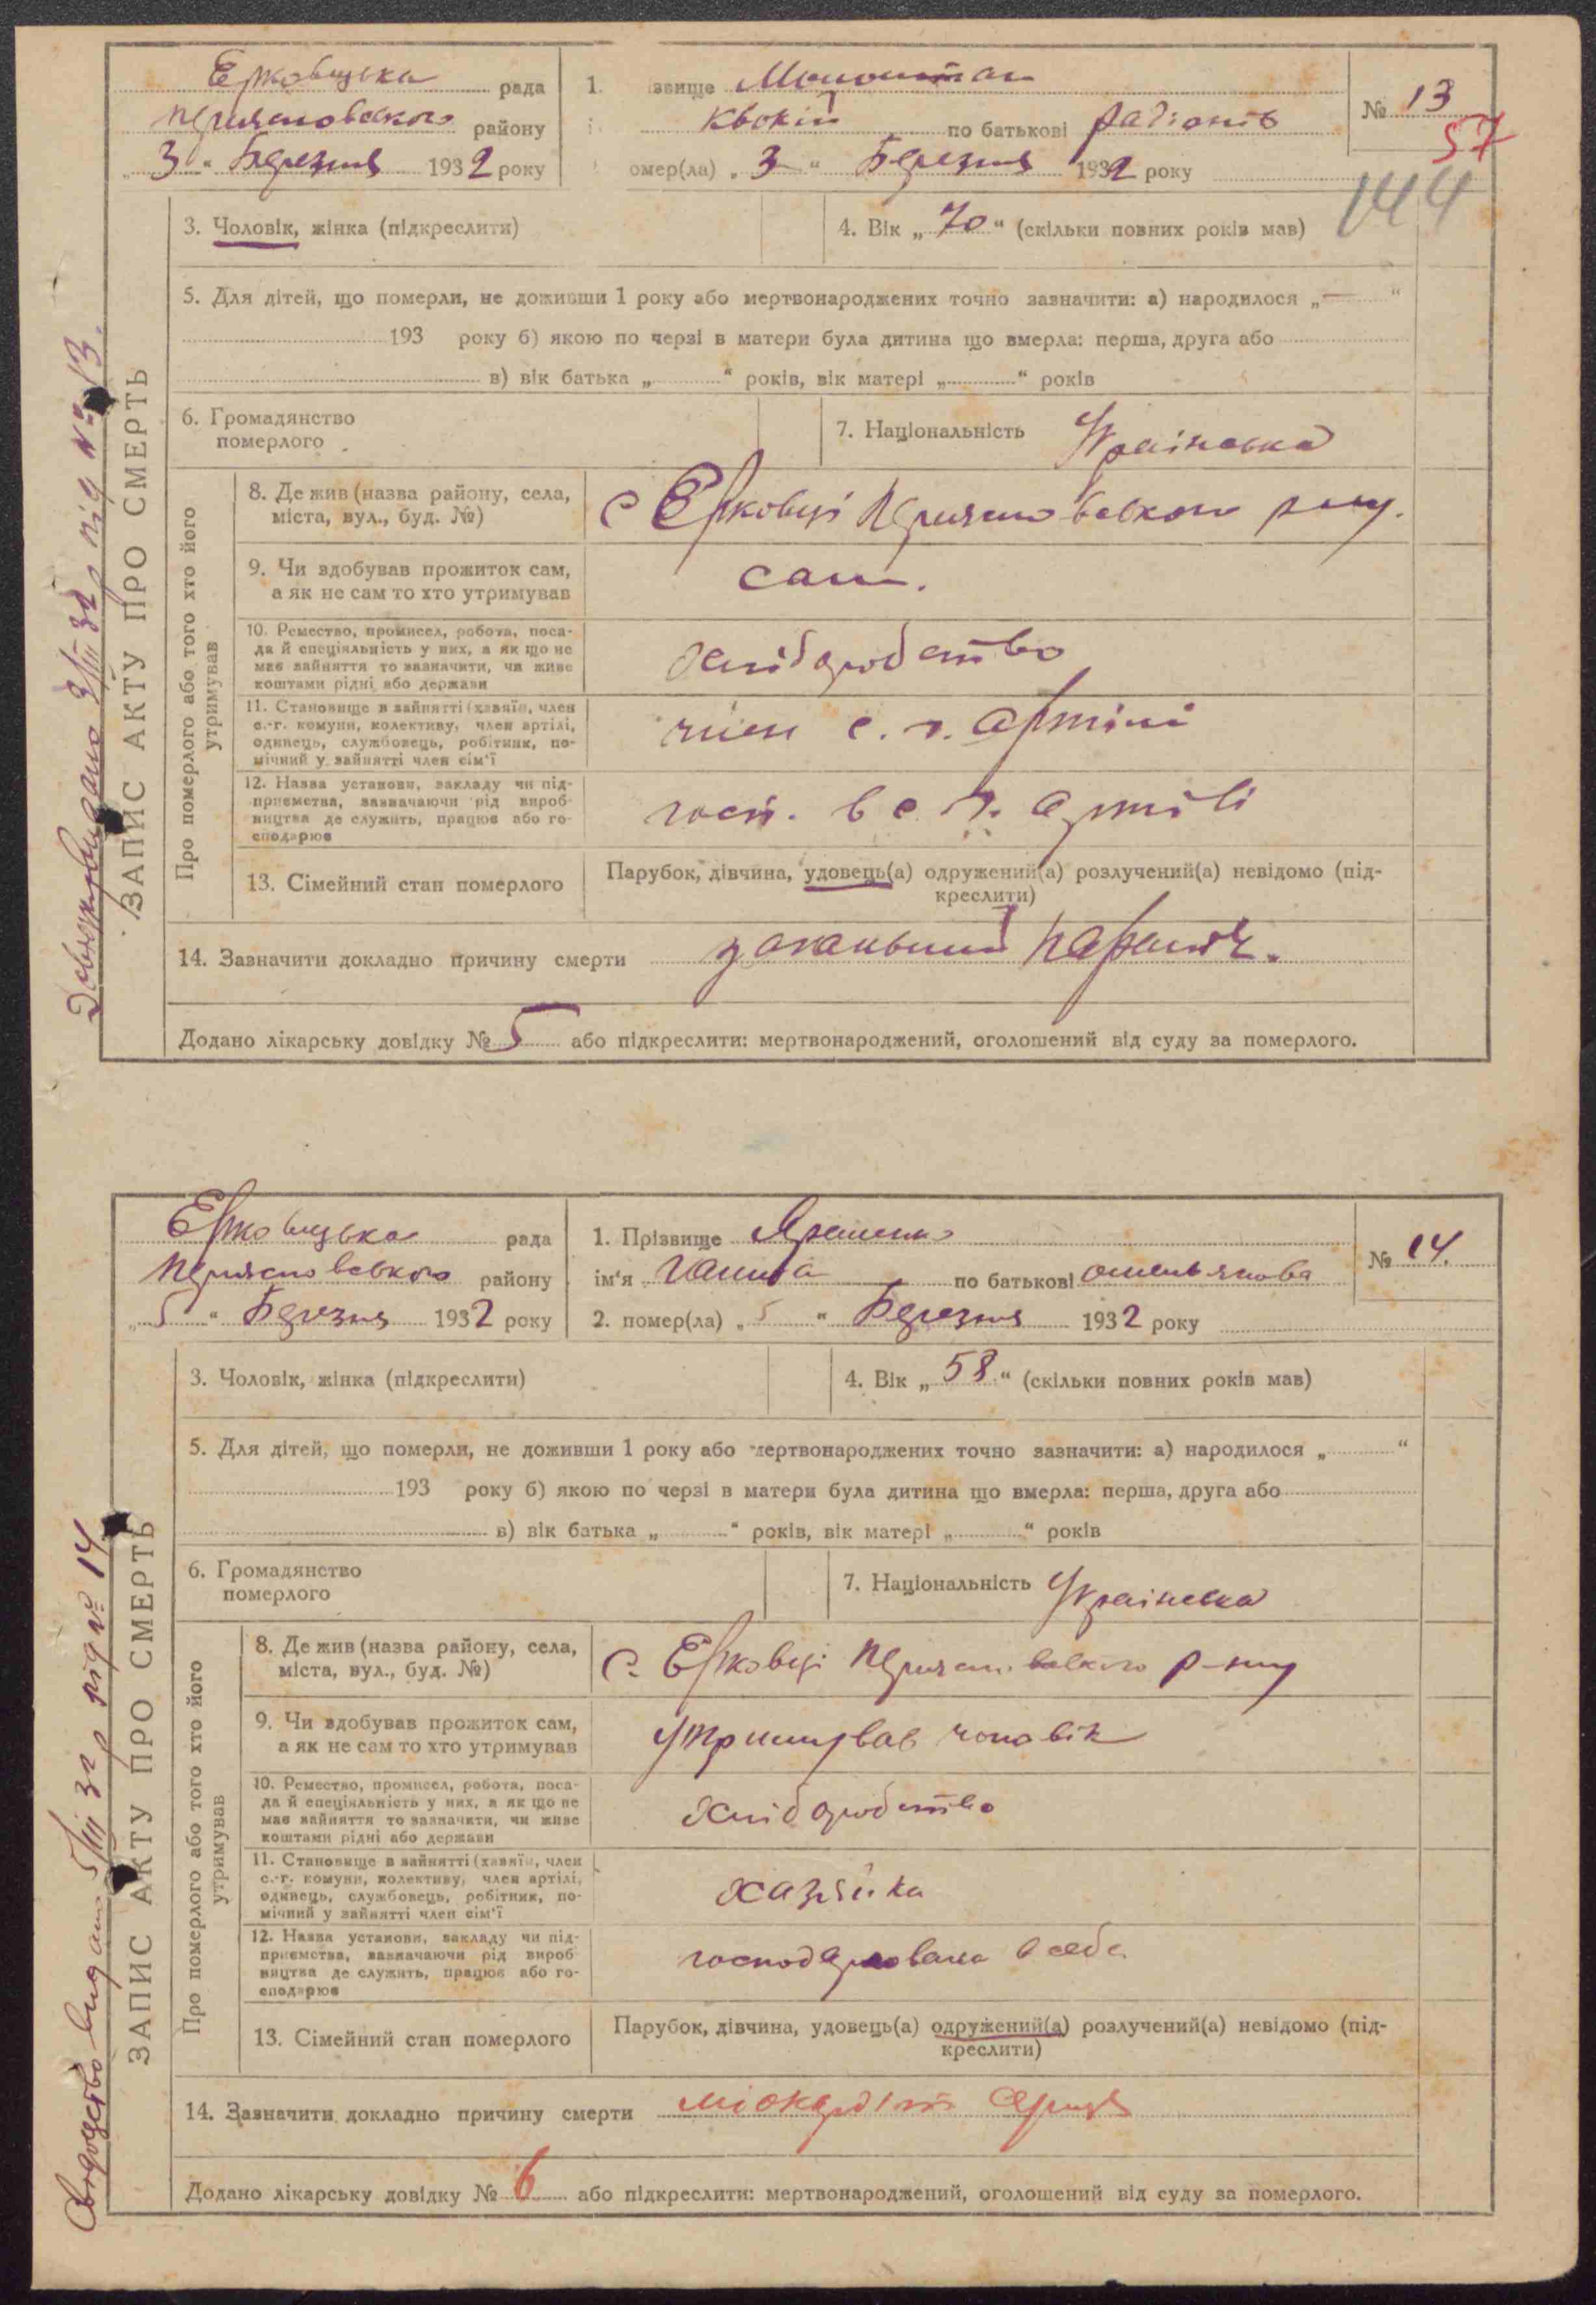 Ерковецька рада
Переяславського району
„3“ Березня 1932 року
1. звище
по батькові Радіонів
омер(ла) „3“ Березня 1932 року
№ 13
57
144
3. Чоловік, жінка (підкреслити)
4. Вік „70“ (скільки повних років мав)
5. Для дітей, що померли, не доживши 1 року або мертвонароджених точно зазначити: а) народилося „—“
193 року б) якою по черзі в матери була дитина що вмерла: перша, друга або
в) вік батька „ “ років, вік матері „ “ років
6. Громадянство
померлого
7. Національність Українська
Про померлого або того хто його
утримував
8. Де жив (назва району, села,
міста, вул., буд. №)
с Ерковці Переяславського р-ну.
9. Чи здобував прожиток сам,
а як не сам то хто утримував
сам.
10. Ремество, промисел, робота, поса-
да й спеціяльність у них, а як що не
має зайняття то зазначити, чи живе
коштами рідні або держави
хліборобство
11. Становище в зайнятті (хазяїн, член
с.-г. комуни, колективу, член артілі,
одинець, службовець, робітник, по-
мічний у зайнятті член сім'ї
член с. г. артілі
12. Назва установи, закладу чи під-
приємства, зазначаючи рід вироб-
ництва де служить, працює або го-
сподарює
госп. в с. г. артілі
13. Сімейний стан померлого
Парубок, дівчина, удовець(а) одружений(а) розлучений(а) невідомо (під-
креслити)
14. Зазначити докладно причину смерти
Додано лікарську довідку № 5 або підкреслити: мертвонароджений, оголошений від суду за померлого.
ЗАПИС АКТУ ПРО СМЕРТЬ
видано 3/III 32 р під № 13.
Ерковецька рада
Переяславського району
„5“ Березня 1932 року
1. Прізвище Яременко
ім'я Ганна по батькові Омелянова
2. помер(ла) „5“ Березня 1932 року
№ 14.
3. Чоловік, жінка (підкреслити)
4. Вік „58“ (скільки повних років мав)
5. Для дітей, що померли, не доживши 1 року або мертвонароджених точно зазначити: а) народилося „ “
193 року б) якою по черзі в матери була дитина що вмерла: перша, друга або
в) вік батька „ “ років, вік матері „ “ років
6. Громадянство
померлого
7. Національність Українська
Про померлого або того хто його
утримував
8. Де жив (назва району, села,
міста, вул., буд. №)
С. Ерковці Переяславського р-ну
9. Чи здобував прожиток сам,
а як не сам то хто утримував
утримував чоловік
10. Ремество, промисел, робота, поса-
да й спеціяльність у них, а як що не
має зайняття то зазначити, чи живе
коштами рідні або держави
хліборобство
11. Становище в зайнятті (хазяїн, член
с.-г. комуни, колективу, член артілі,
одинець, службовець, робітник, по-
мічний у зайнятті член сім'ї
хазяйка
12. Назва установи, закладу чи під-
приємства, зазначаючи рід вироб-
ництва де служить, працює або го-
сподарює
господарювала в себе
13. Сімейний стан померлого
Парубок, дівчина, удовець(а) одружений(а) розлучений(а) невідомо (під-
креслити)
14. Зазначити докладно причину смерти міокардіт серця
Додано лікарську довідку № 6 або підкреслити: мертвонароджений, оголошений від суду за померлого.
ЗАПИС АКТУ ПРО СМЕРТЬ
видано 5/III 32 р під № 14